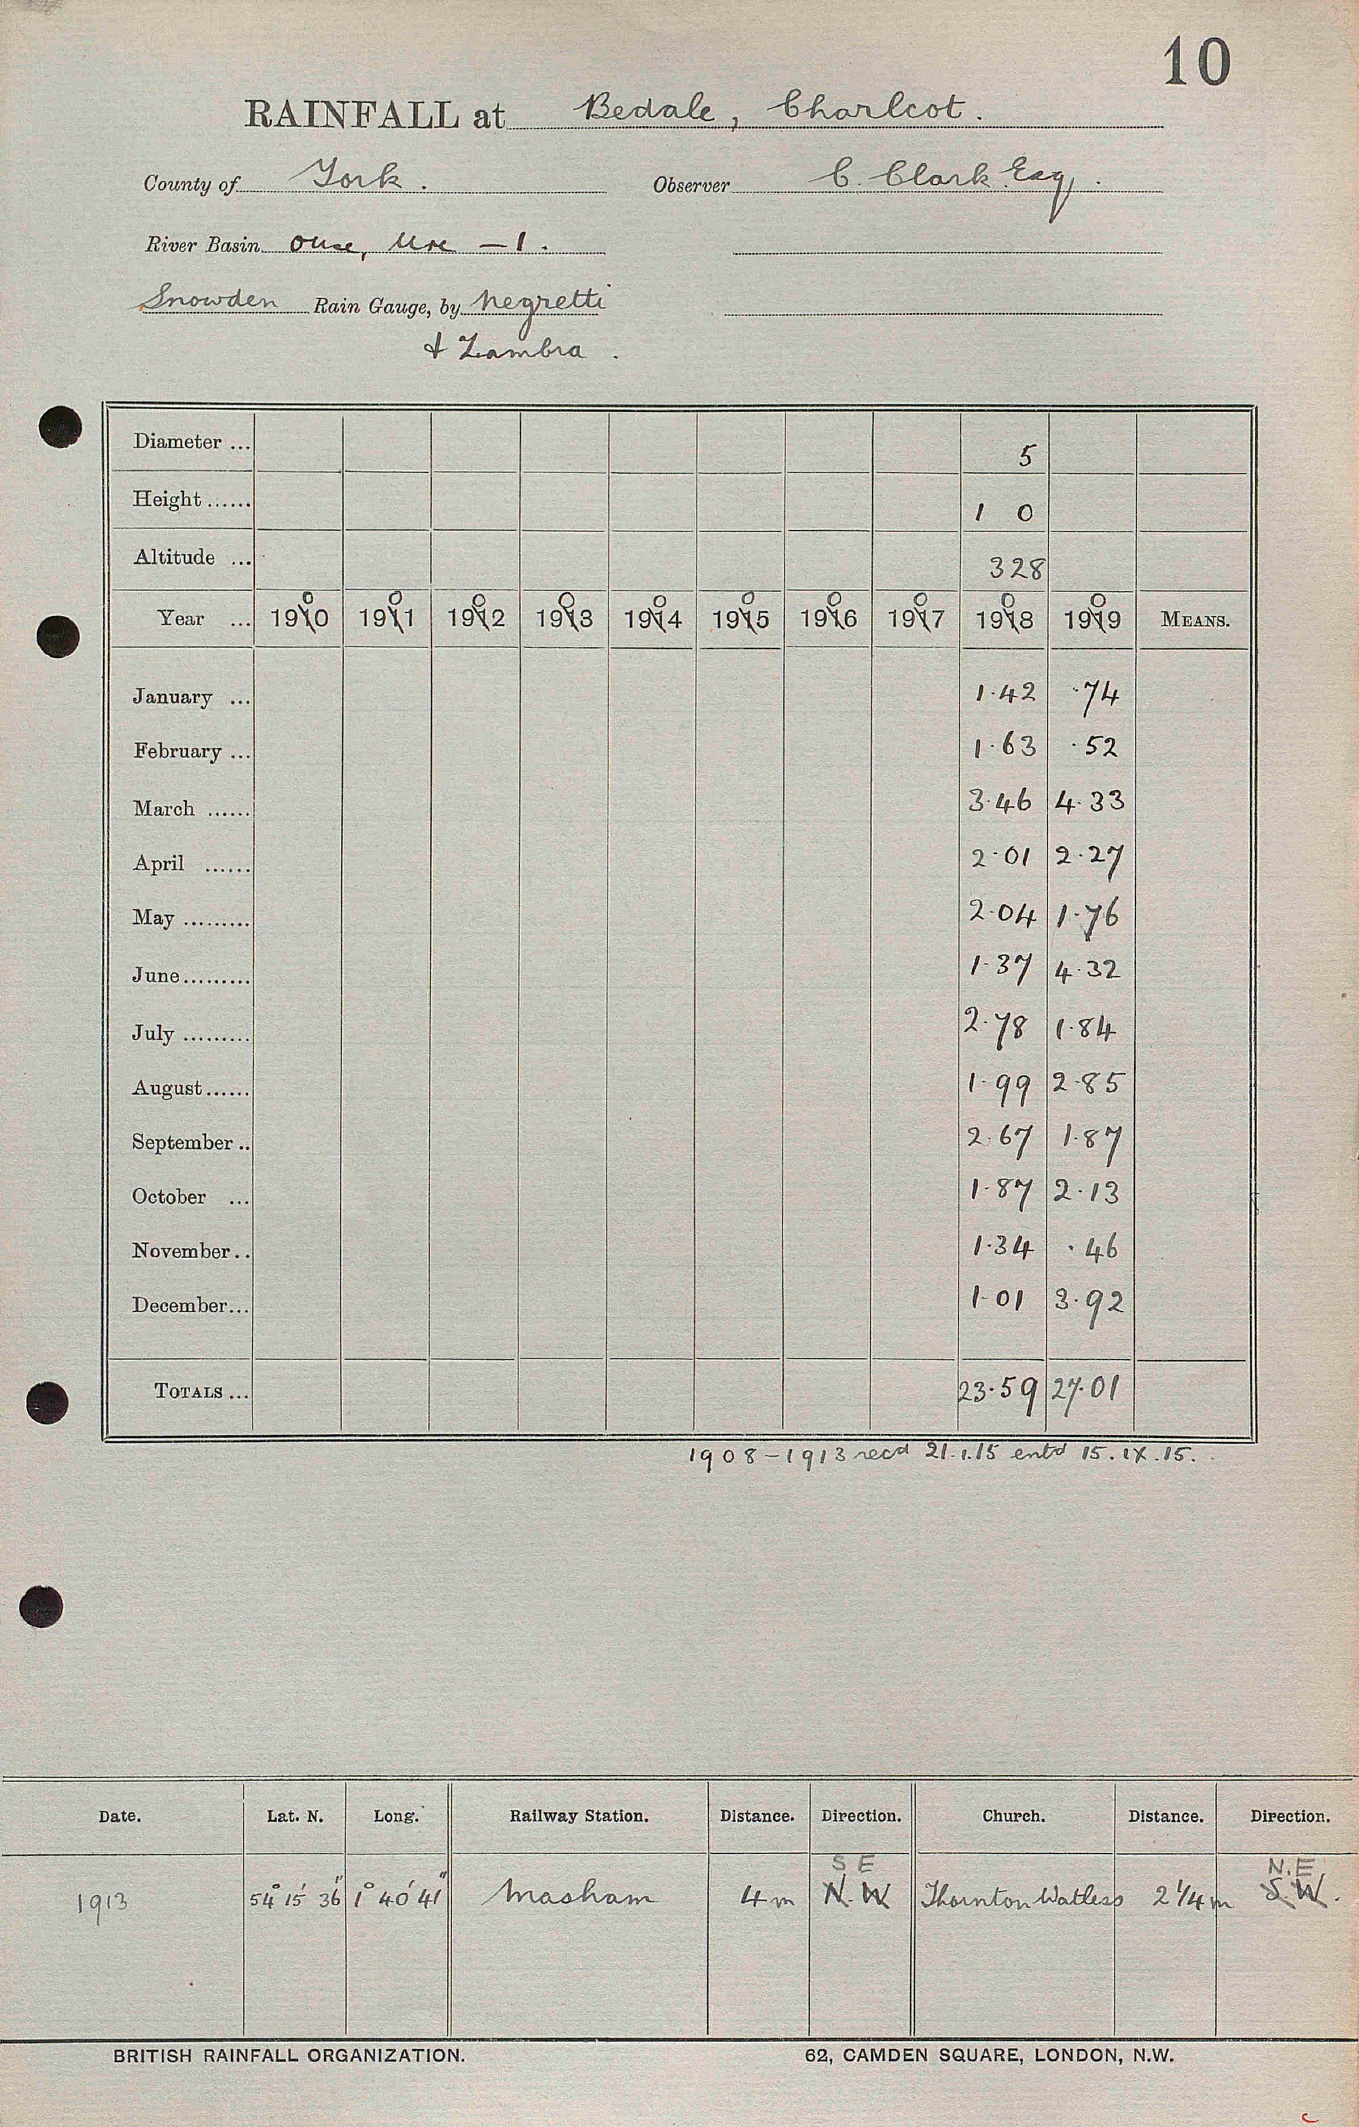 10
RAINFALL at Bedale, Charlcot.
County of York. Observer C. Clark Esq.
River Basin Ouse, Ure – 1.
Snowden Rain Gauge, by Negretti
& Zambra.
Diameter ... 5
Height ...... 1 0
Altitude ... 328
0 0 0 0 0 0 0 0 0 0
Year ... 1910 1911 1912 1913 1914 1915 1916 1917 1918 1919 MEANS.
January ... 1.42 .74
February ... 1.63 .52
March ...... 3.46 4.33
April ...... 2.01 2.27
May ......... 2.04 1.76
June ......... 1.37 4.32
July ......... 2.78 1.84
August ...... 1.99 2.85
September .. 2.67 1.87
October ... 1.87 2.13
November .. 1.34 .46
December ... 1.01 3.92
TOTALS ... 23.59 27.01
1908–1913 recd 21.1.15 entd 15.IX.15.
Date. Lat. N. Long. Railway Station. Distance. Direction. Church. Distance. Direction.
S E N.E
1913 54° 15' 36" 1° 40' 41" Masham 4 m N.W Thornton Watless 2 1/4 m S.W.
BRITISH RAINFALL ORGANIZATION. 62, CAMDEN SQUARE, LONDON, N.W.
c